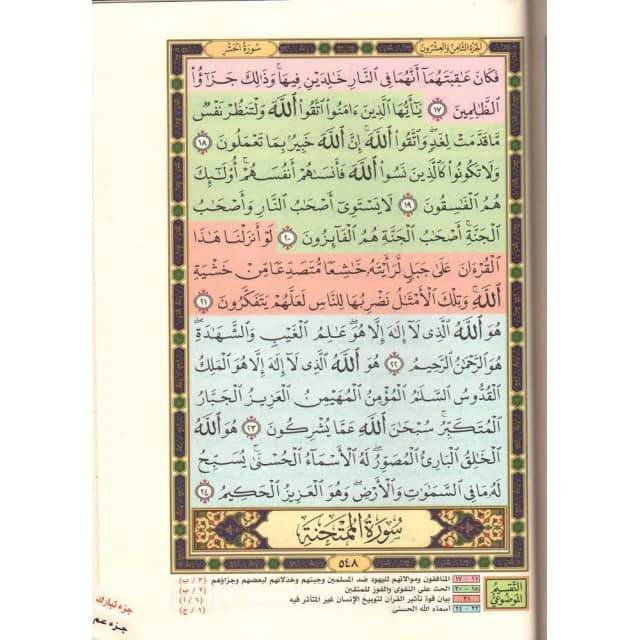 سورة الحشر
الجزء الثامن والعشرون
فَكَانَ عَٰقِبَتَهُمَآ أَنَّهُمَا فِى ٱلنَّارِ خَٰلِدَيْنِ فِيهَا ۚ وَذَٰلِكَ جَزَٰٓؤُا۟
ٱلظَّٰلِمِينَ ١٧ يَٰٓأَيُّهَا ٱلَّذِينَ ءَامَنُوا۟ ٱتَّقُوا۟ ٱللَّهَ وَلْتَنظُرْ نَفْسٌ
مَّا قَدَّمَتْ لِغَدٍ ۖ وَٱتَّقُوا۟ ٱللَّهَ ۚ إِنَّ ٱللَّهَ خَبِيرٌۢ بِمَا تَعْمَلُونَ ١٨
وَلَا تَكُونُوا۟ كَٱلَّذِينَ نَسُوا۟ ٱللَّهَ فَأَنسَىٰهُمْ أَنفُسَهُمْ ۚ أُو۟لَٰٓئِكَ
هُمُ ٱلْفَٰسِقُونَ ١٩ لَا يَسْتَوِىٓ أَصْحَٰبُ ٱلنَّارِ وَأَصْحَٰبُ
ٱلْجَنَّةِ ۚ أَصْحَٰبُ ٱلْجَنَّةِ هُمُ ٱلْفَآئِزُونَ ٢٠ لَوْ أَنزَلْنَا هَٰذَا
ٱلْقُرْءَانَ عَلَىٰ جَبَلٍ لَّرَأَيْتَهُۥ خَٰشِعًا مُّتَصَدِّعًا مِّنْ خَشْيَةِ
ٱللَّهِ ۚ وَتِلْكَ ٱلْأَمْثَٰلُ نَضْرِبُهَا لِلنَّاسِ لَعَلَّهُمْ يَتَفَكَّرُونَ ٢١
هُوَ ٱللَّهُ ٱلَّذِى لَآ إِلَٰهَ إِلَّا هُوَ ۖ عَٰلِمُ ٱلْغَيْبِ وَٱلشَّهَٰدَةِ ۖ
هُوَ ٱلرَّحْمَٰنُ ٱلرَّحِيمُ ٢٢ هُوَ ٱللَّهُ ٱلَّذِى لَآ إِلَٰهَ إِلَّا هُوَ ٱلْمَلِكُ
ٱلْقُدُّوسُ ٱلسَّلَٰمُ ٱلْمُؤْمِنُ ٱلْمُهَيْمِنُ ٱلْعَزِيزُ ٱلْجَبَّارُ
ٱلْمُتَكَبِّرُ ۚ سُبْحَٰنَ ٱللَّهِ عَمَّا يُشْرِكُونَ ٢٣ هُوَ ٱللَّهُ
ٱلْخَٰلِقُ ٱلْبَارِئُ ٱلْمُصَوِّرُ ۖ لَهُ ٱلْأَسْمَآءُ ٱلْحُسْنَىٰ ۚ يُسَبِّحُ
لَهُۥ مَا فِى ٱلسَّمَٰوَٰتِ وَٱلْأَرْضِ ۖ وَهُوَ ٱلْعَزِيزُ ٱلْحَكِيمُ ٢٤
سورة الممتحنة
٥٤٨
التقسيم الموضوعي
١١ - ١٧ المنافقون وموالاتهم لليهود ضد المسلمين وجبنهم وخذلانهم لبعضهم وجزاؤهم (٣ / ب)
١٨ - ٢٠ الحث على التقوى والفوز للمتقين (٢ / ب)
٢١ بيان قوة تأثير القرآن لتوبيخ الإنسان غير المتأثر فيه (٦ / أ)
٢٢ - ٢٤ أسماء الله الحسنى (١ / ج)
جزء تبارك
جزء عم